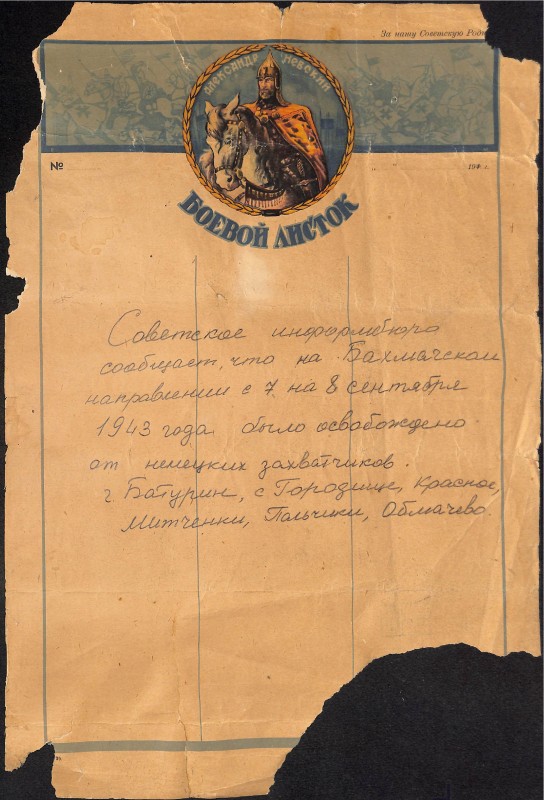 За нашу Советскую Роди
АЛЕКСАНДР НЕВСКИЙ
№
194 г.
БОЕВОЙ ЛИСТОК
Советское информбюро
сообщает, что на Бахмачском
направлении с 7 на 8 сентября
1943 года было освобождено
от немецких захватчиков.
г Батурин, с Городище, Красное,
Митченки, Пальчики, Обмачево.